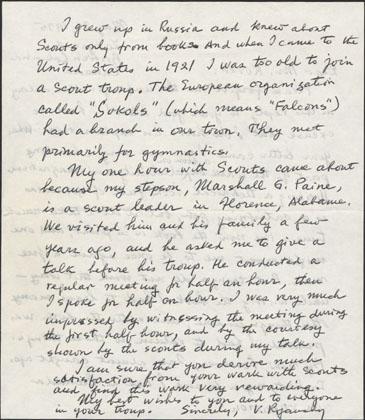 I grew up in Russia and knew about
Scouts only from books. And when I came to the
United States in 1921 I was too old to join
a scout troup. The European organization
called "Sokols" (which means "Falcons")
had a branch in our town. They met
primarily for gymnastics.
My one hour with Scouts came about
because my stepson, Marshall G. Paine,
is a scout leader in Florence, Alabama.
We visited him and his family a few
years ago, and he asked me to give a
talk before his troup. He conducted a
regular meeting for half an hour, then
I spoke for half an hour. I was very much
impressed by witnessing the meeting during
the first half hour, and by the courtesy
shown by the scouts during my talk.
I am sure that you derive much
satisfaction from your work with scouts
and find this work very rewarding.
My best wishes to you and to everyone
in your troup. Sincerely, V. Rojansky